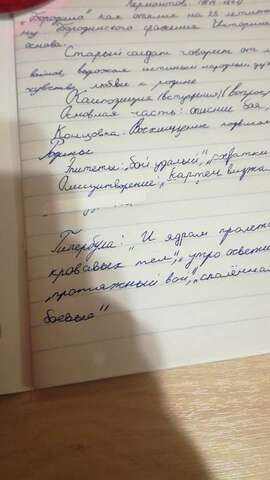 Лермонтов.
"Бородино" как отклик на 25 летие
ну Бородинского сражения Историче
основа.
Старый солдат говорит от л
воинов, выражая истинный народный дух
чувству любви к родине
Композиция (вступление) (вопрос
Основная часть: описание боя
Концовка. Восхищение подвигом
Родины
Эпитеты: "бой удалый", "схватки
Олицетворение: картечь визжа
Гипербула: "И ядрам пролета
кровавых тел", "утро освети
"протяжный вой", "спалённая
боевые"